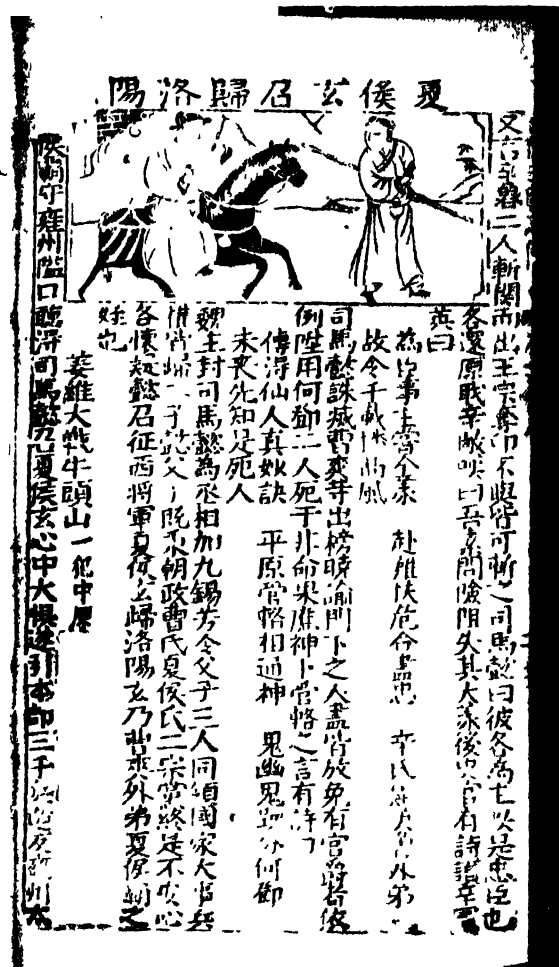 夏侯玄召歸洛陽
二人斬關而出王宗奪印不與皆可斬之司馬懿曰彼各為主此是忠臣也
各還原職辛敞嘆曰吾若不問險阻失其大義後史官有詩讚辛憲
英曰
為臣事主當全義 赴難扶危合盡忠 辛氏憲英
故令千載仰高風
司馬懿誅滅曹爽等出榜曉諭門下之人盡皆放免有官爵者依
例陞用何鄧二人死于非命果應神卜管輅之言有詩曰
傳得仙人真妙訣 平原管輅相通神 鬼幽鬼躁分何鄧
未喪先知是死人
魏主封司馬懿為丞相加九錫芳令父子三人同領國家大事懿
二子懿父子既秉朝政曹氏夏侯氏二宗當終是不安心
各懷疑懿召征西將軍夏侯玄歸洛陽玄乃曹爽外弟夏侯之
姪也
姜維大戰牛頭山 一犯中原
侯霸守雍州隘口聽得司馬懿召夏侯玄心中大懼遂引本部三千反雍州太